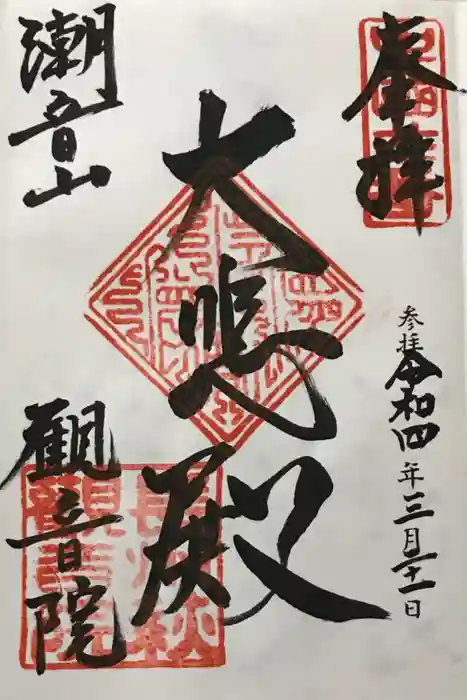 奉拝
参拝令和四年三月三十一日
大悲殿
潮音山
観音院